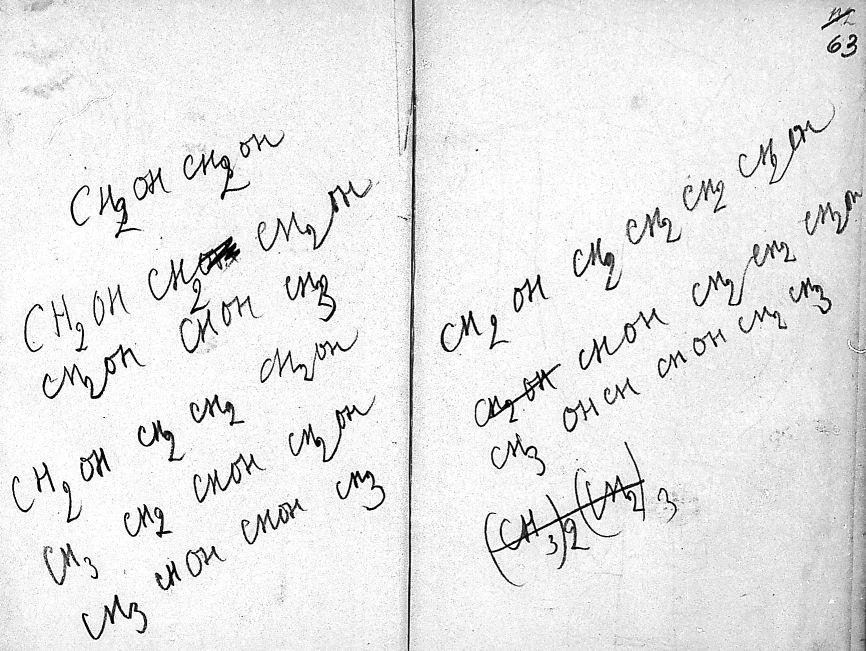 CH2OH CH2OH
CH2OH CH2 CH2OH
CH2OH CHOH CH3
CH2OH CH2 CH2 CH2OH
CH3 CH2 CHOH CH2OH
CH3 CHOH CHOH CH3
63
CH2OH CH2 CH2 CH2 CH2OH
CH2OH CHOH CH2 CH2 CH2OH
CH3 OHCH CHOH CH2 CH3
(CH3)2(CH2)3